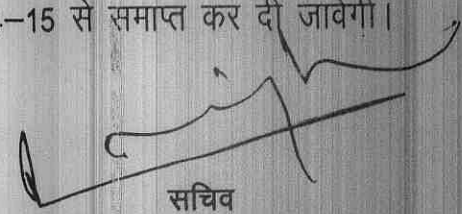 –15 से समाप्त कर दी जावेगी।
सचिव